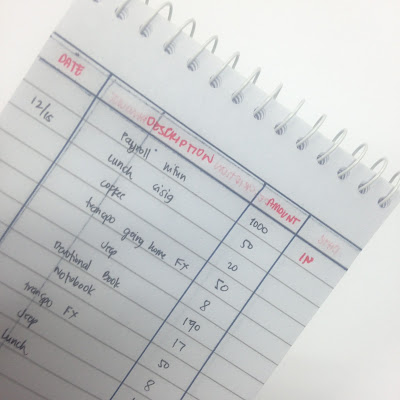 DATE DESCRIPTION AMOUNT IN
12/15 Payroll 1000
Lunch sisig 50
coffee 20
transpo going home FX 50
Jeep 8
Devotional Book 190
Notebook 17
transpo FX 50
Jeep 8
Lunch